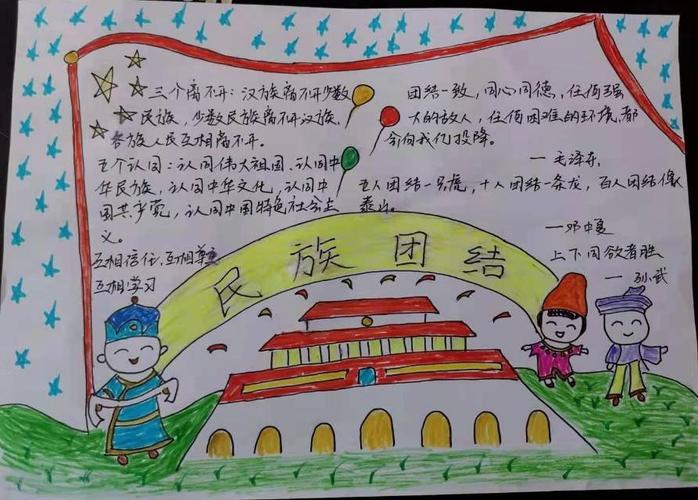 三个离不开：汉族离不开少数
民族，少数民族离不开汉族，
各族人民互相离不开。
五个认同：认同伟大祖国、认同中
华民族，认同中华文化，认同中
国共产党，认同中国特色社会主
义。
互相信任.互相尊重
互相学习
团结一致，同心同德，任何强
大的敌人，任何困难的环境，都
会向我们投降。
—毛泽东
五人团结一只虎，十人团结一条龙，百人团结像
泰山。
—邓中夏
上下同欲者胜
—孙武
民族团结